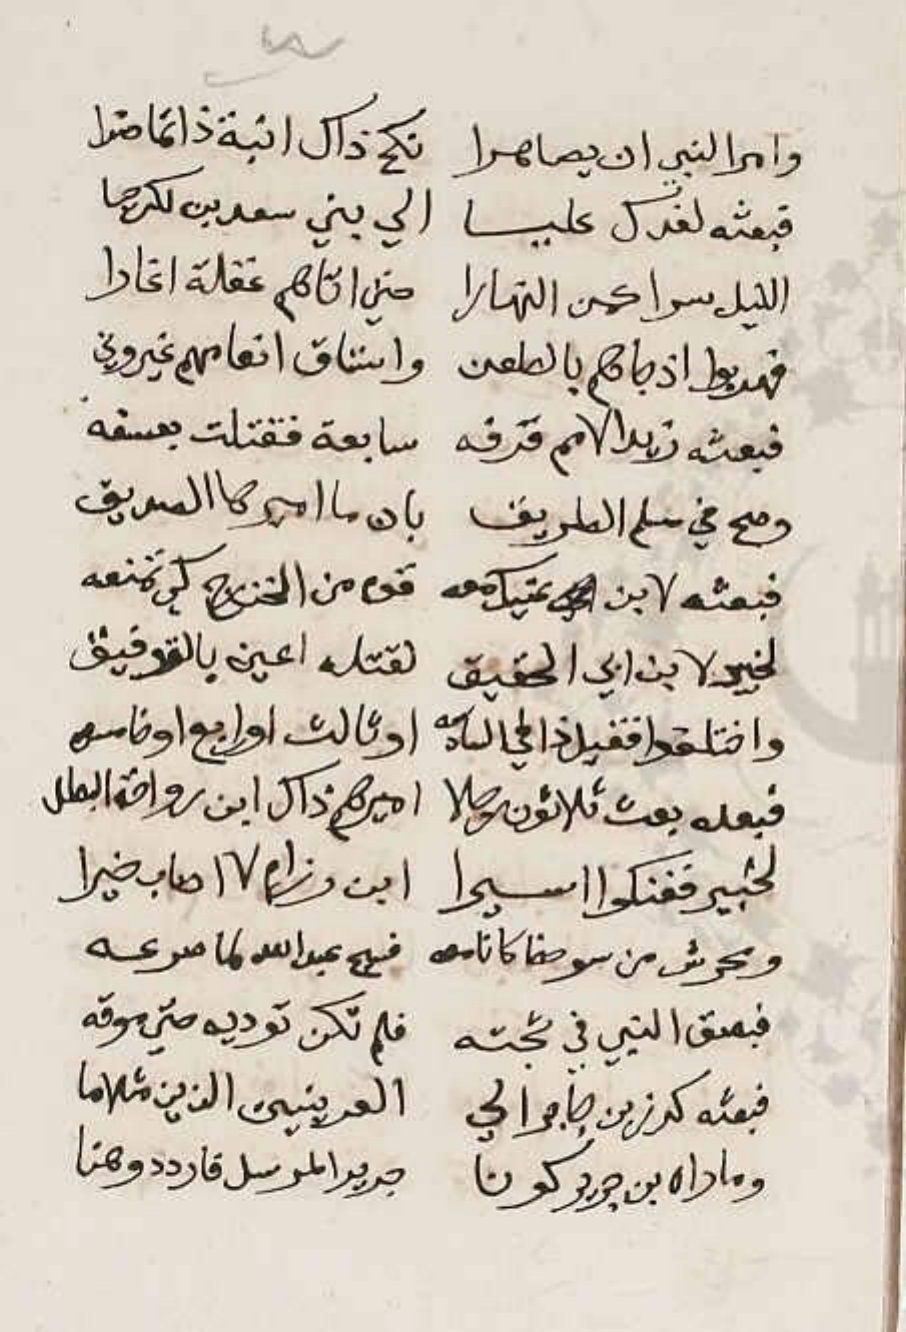 وامر النبي ان يصاهرا نكح ذاك ابنة ذا تماضرا
فبعثه لفدك عليا الي بني سعد بن بكر حيا
الليل سرا كمن النهارا حتي اتاهم غفلة اغارا
فهربوا اذ جاهم بالظعن واستاق انعامهم غير وني
فبعثه زيدا لام قرفه سابعة فقتلت بعسفه
وصح في مسلم الطريق بان ما اميرها الصديق
فبعثه لابن عتيك معه قوم من الخزرج كي تمنعه
لخيبر لابن ابي الحقيق لقتله اعين بالتوفيق
واختلفوا فقيل ذا في السادسه او ثالث او رابع او خامسه
فبعده بعث ثلاثون رجلا اميرهم ذاك ابن رواحة البطل
لخيبر ففتكوا اسيرا ابن رزام لا اصاب خيرا
من سوحط كانا معه فشج عبدالله لما صرعه
فبصق النبي في شجته فلم تكن توذيه حتي موته
فبعثه كرز بن جابر الي العرينيين الذين مثلا
بن جرير كونا جرير المرسل فاردد وهنا